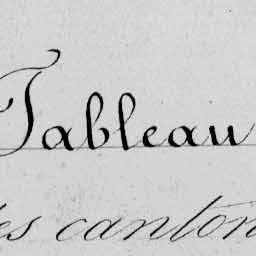 Tableau
es canton